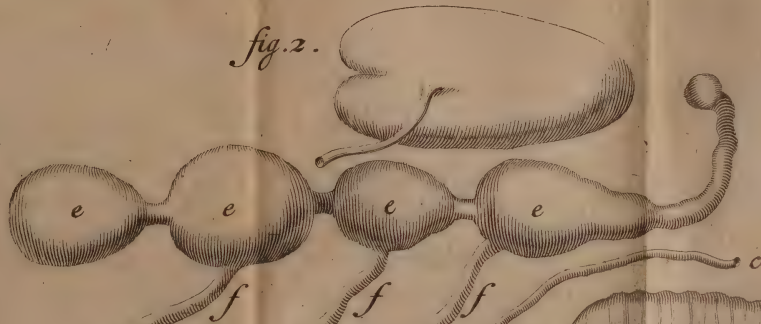 fig. 2.
e e e e
c
f f f